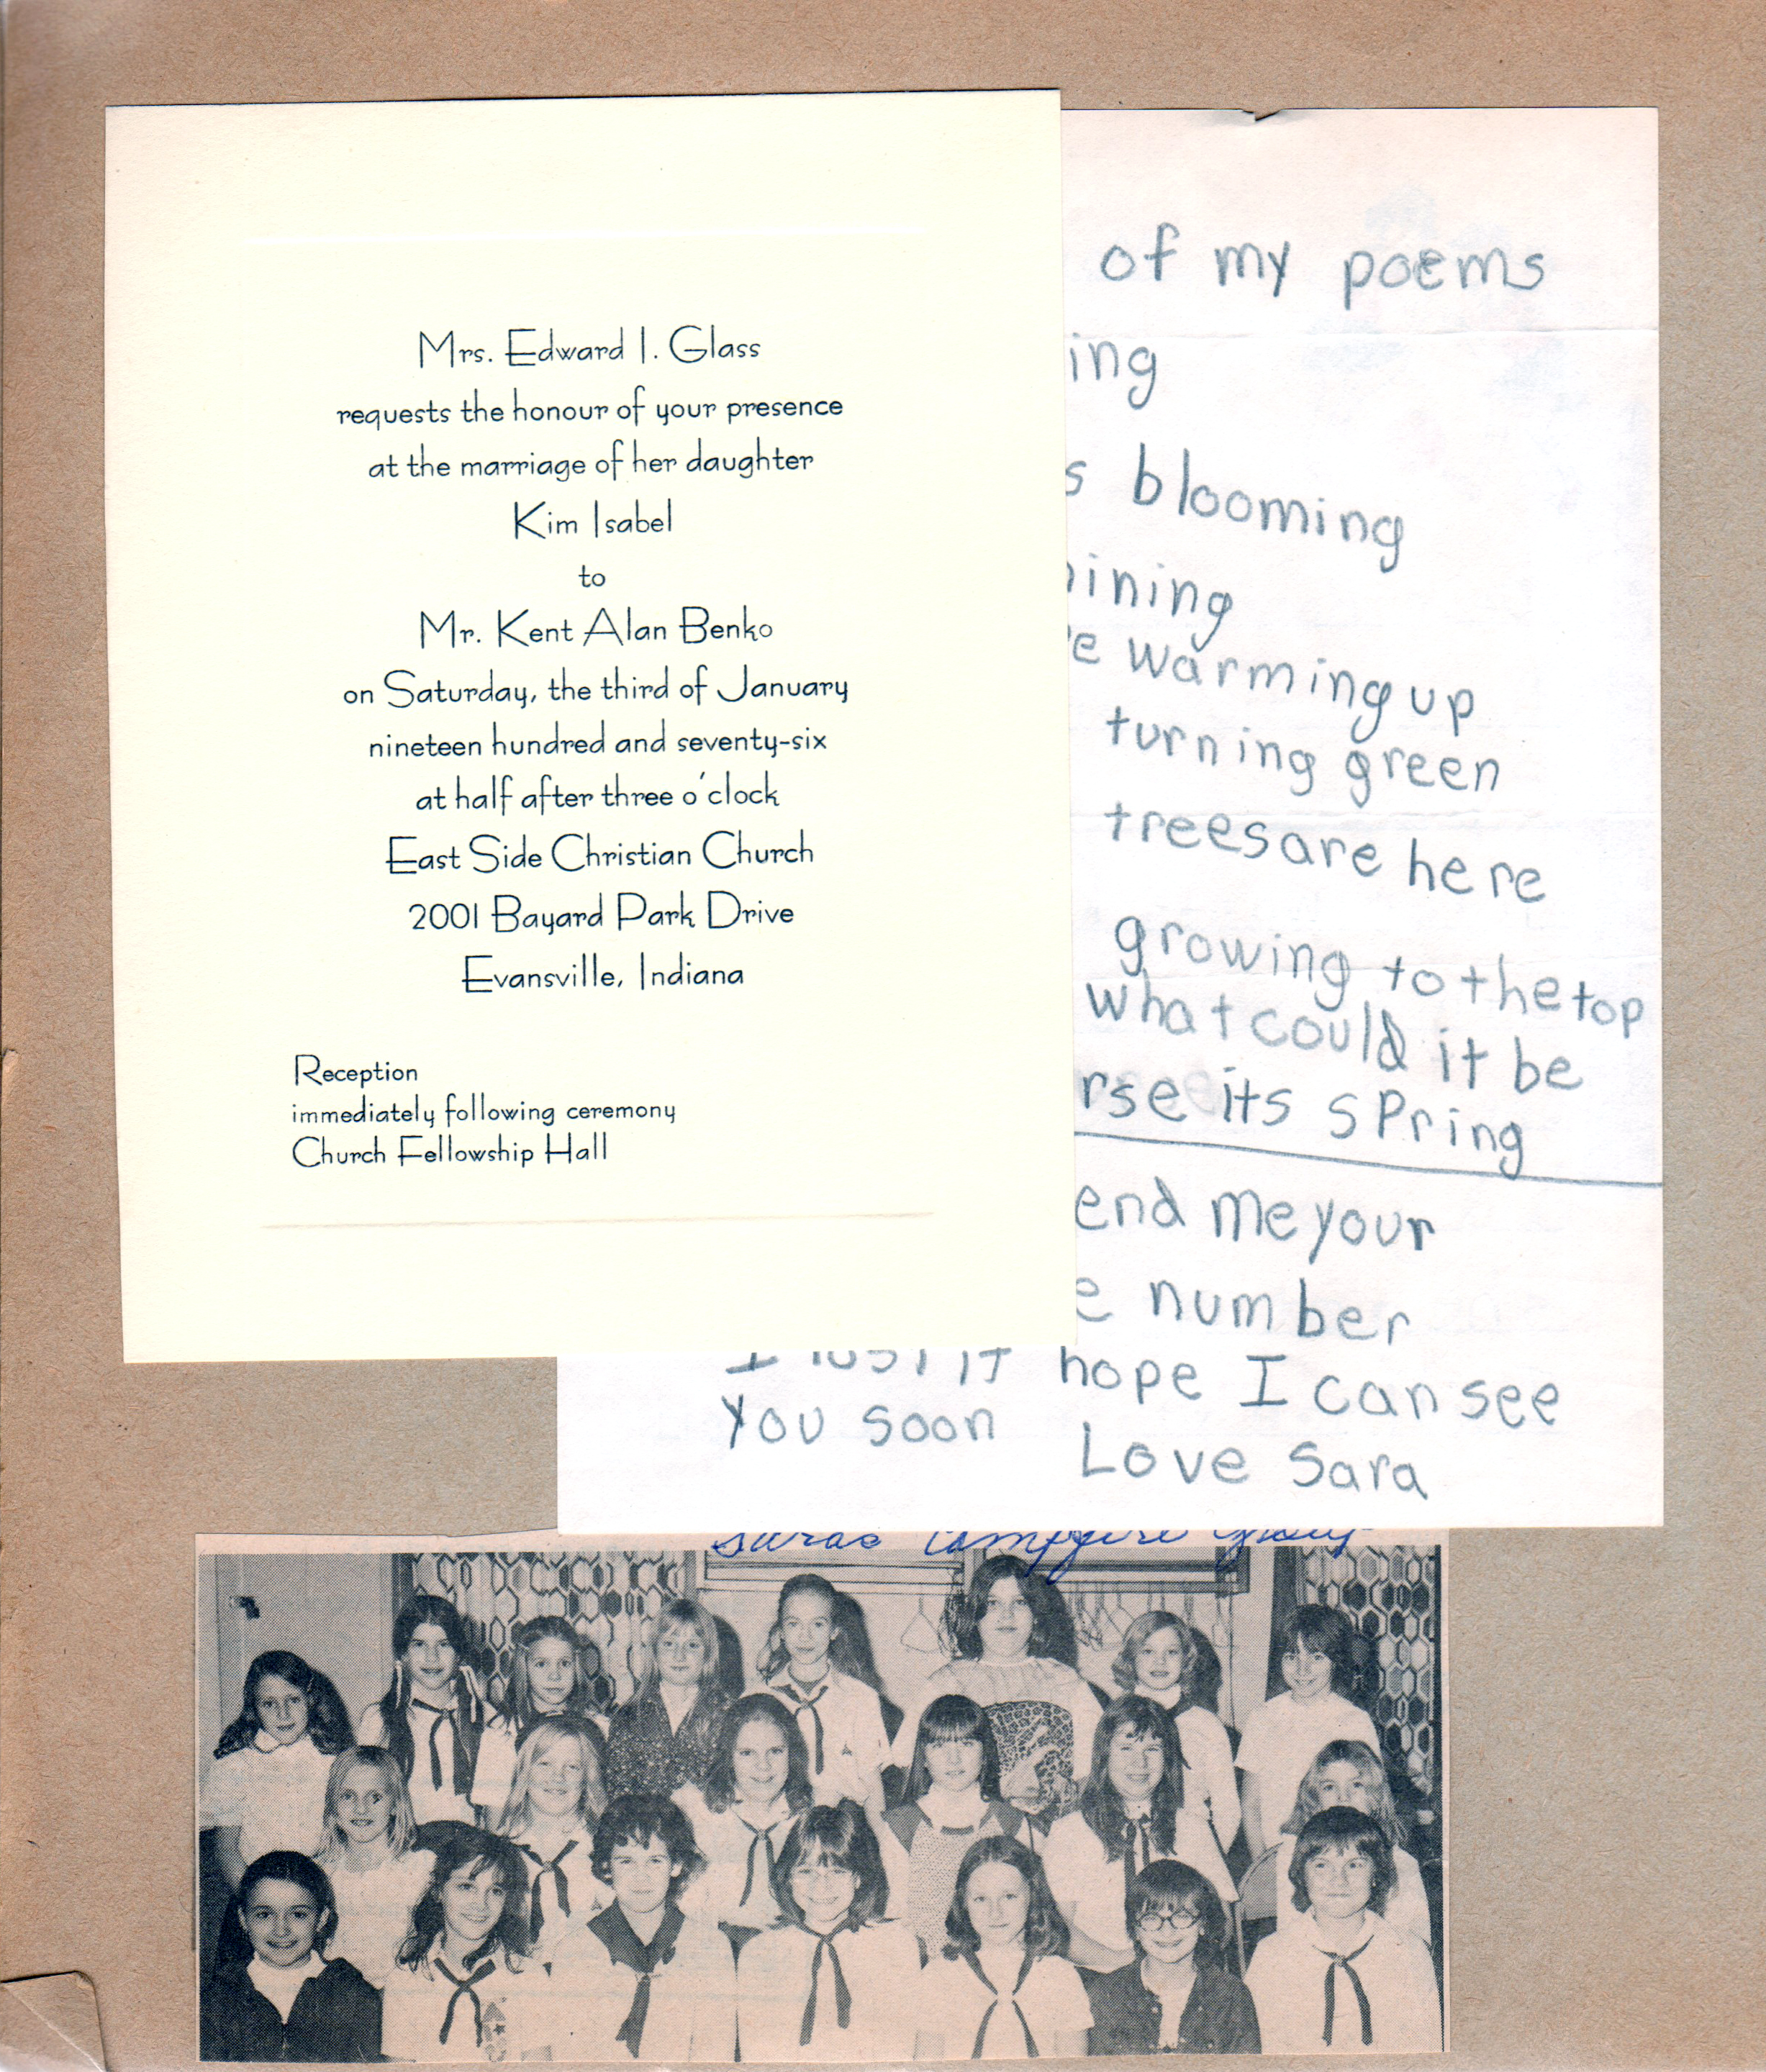 Mrs. Edward I. Glass
requests the honour of your presence
at the marriage of her daughter
Kim Isabel
to
Mr. Kent Alan Benko
on Saturday, the third of January
nineteen hundred and seventy-six
at half after three o'clock
East Side Christian Church
2001 Bayard Park Drive
Evansville, Indiana
Reception
immediately following ceremony
Church Fellowship Hall
of my poems
ing
s blooming
ining
e warming up
turning green
trees are here
growing to the top
what could it be
rse its spring
end me your
e number
I lost it hope I can see
You soon
Love Sara
Saras Campfire Group